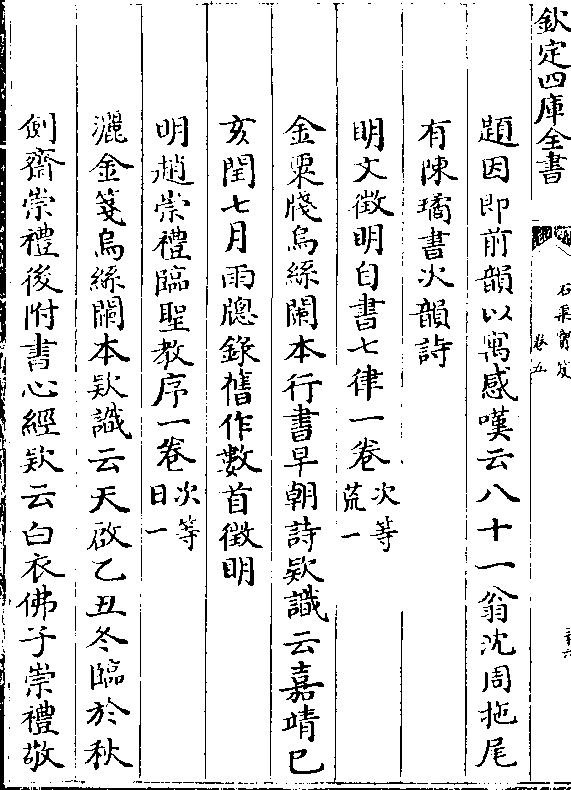 欽定四庫全書
石渠寶笈
卷五
題因即前韻以寓感嘆云八十一翁沈周拖尾
有陳璚書次韻詩
明文徵明自書七律一卷次等荒一
金粟牋烏絲闌本行書早朝詩欵識云嘉靖己
亥閏七月雨牕錄舊作數首徵明
明趙崇禮臨聖教序一卷次等日一
灑金箋烏絲闌本欵識云天啟乙丑冬臨於秋
劍齋崇禮後附書心經欵云白衣佛子崇禮敬